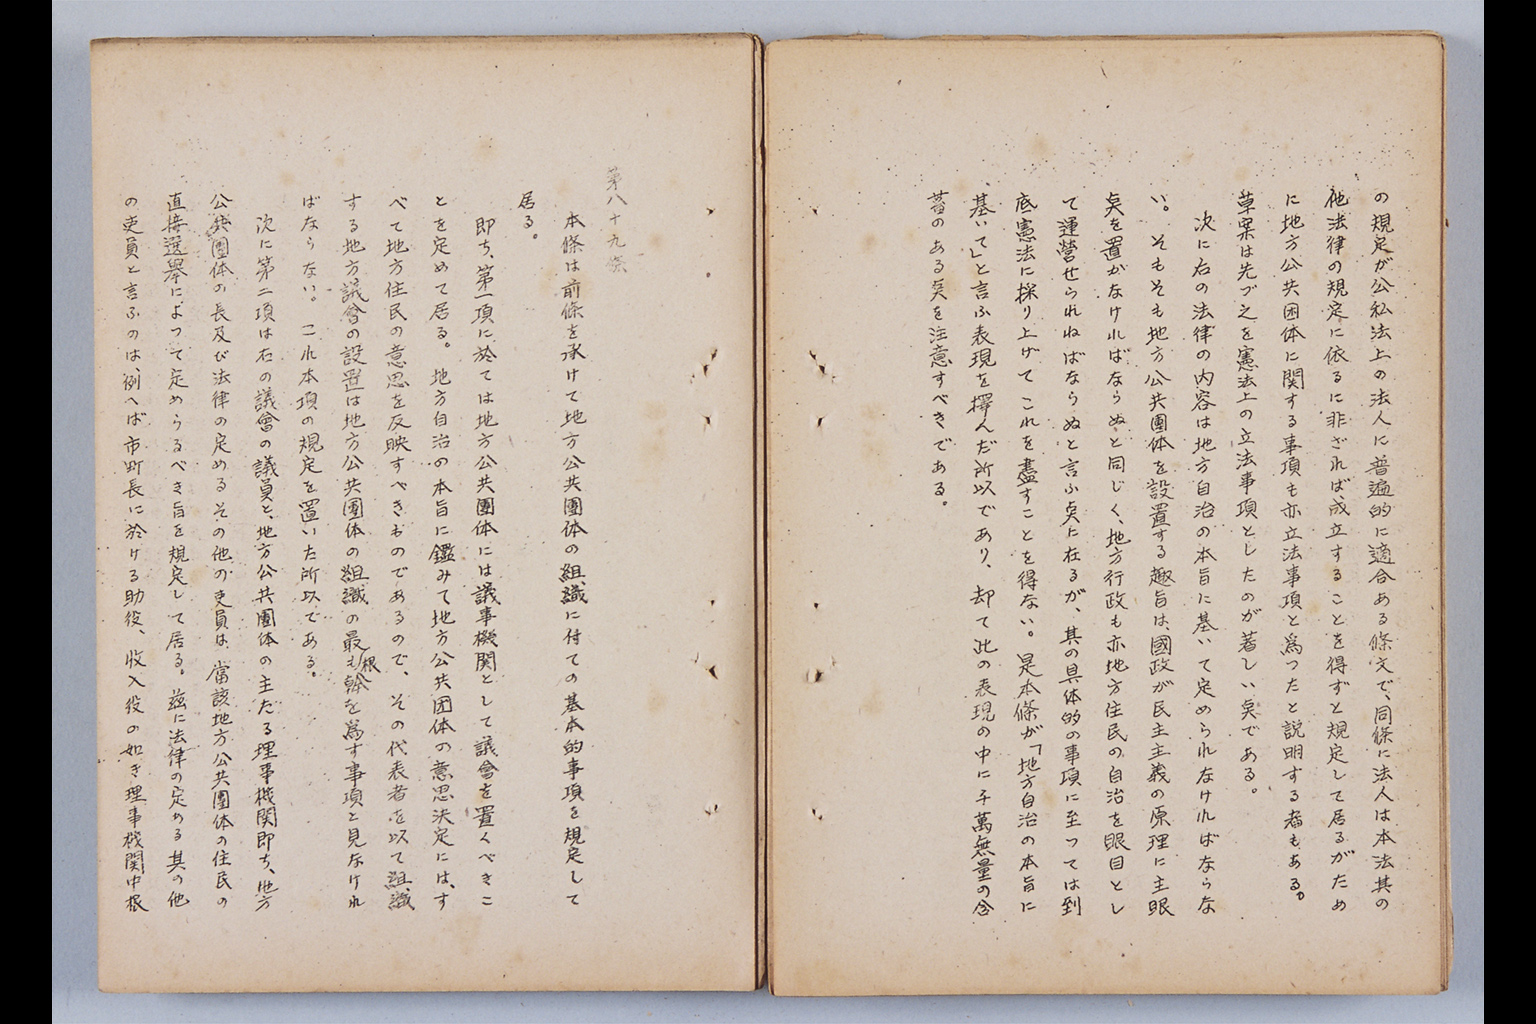 の規定が公私法上の法人に普遍的に適合ある條文で、同條に法人は本法其の
他法律の規定に依るに非ざれば、成立することを得ずと規定して居るがため
に地方公共団体に関する事項も亦立法事項と為つたと説明する者もある。
草案は先づ之を憲法上の立法事項としたのが著しい点である。
次に右の法律の内容は地方自治の本旨に基いて定められなければならな
い。そもそも地方公共團体を設置する趣旨は、國政が民主主義の原理に主眼
点を置かなければならぬと同じく、地方行政も亦地方住民の自治を眼目とし
て運営せられねばならぬと言ふ点に在るが、其の具体的の事項に至つては到
底憲法に採り上げてこれを盡すことを得ない。是本條が「地方自治の本旨に
基いて」と言ふ表現を擇んだ所以であり、却て此の表現の中に千萬無量の含
蓄のある点を注意すべきである。
第八十九條
本條は前條を承けて地方公共團体の組織に付ての基本的事項を規定して
居る。
即ち、第一項に於ては地方公共團体には議事機関として議會を置くべきこ
とを定めて居る。地方自治の本旨に鑑みて地方公共団体の意思決定には、す
べて地方住民の意思を反映すべきものであるので、その代表者を以て組織
する地方議會の設置は地方公共團体の組織の最も根幹を為す事項と見なけれ
ばならない。これ本項の規定を置いた所以である。
次に第二項は右の議會の議員と、地方公共團体の主たる理事機関即ち、地方
公共團体の長及び法律の定めるその他の吏員は、當該地方公共團体の住民の
直接選挙によつて定めらるべき旨を規定して居る。茲に法律の定める其の他
の吏員と言ふのは、例へば市町長に於ける助役、收入役の如き理事機関中根